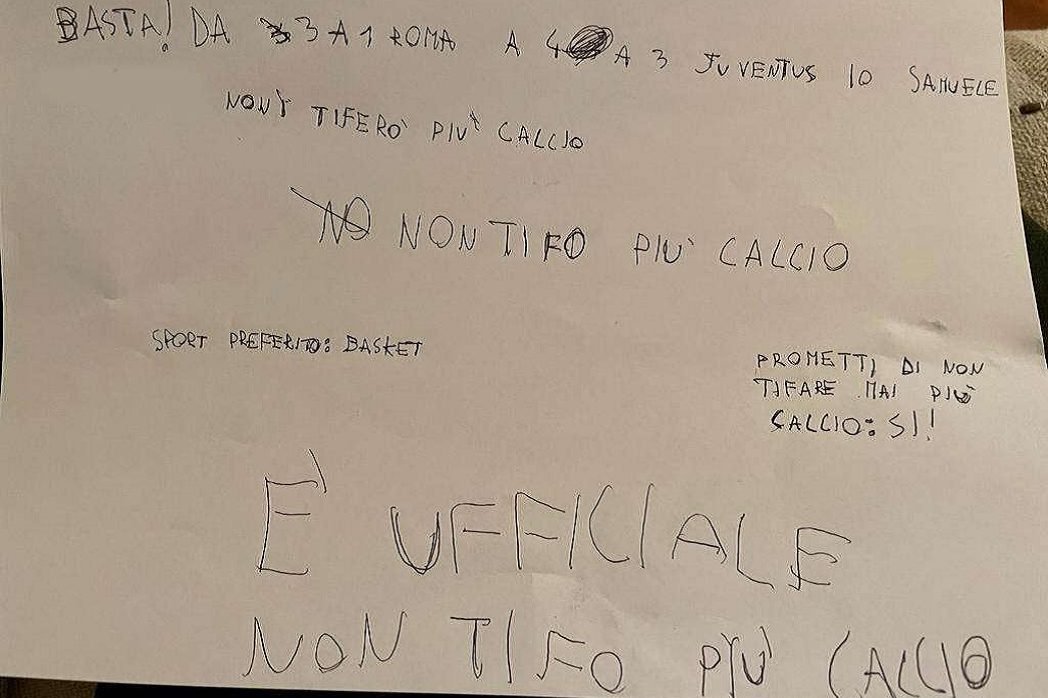 BASTA! DA 3 A 1 ROMA A 4 A 3 JUVENTUS IO SAMUELE
NON TIFERO' PIU' CALCIO
NO NON TIFO PIU' CALCIO
SPORT PREFERITO: BASKET
PROMETTI DI NON
TIFARE MAI PIU'
CALCIO: SI!
E' UFFICIALE
NON TIFO PIU' CALCIO